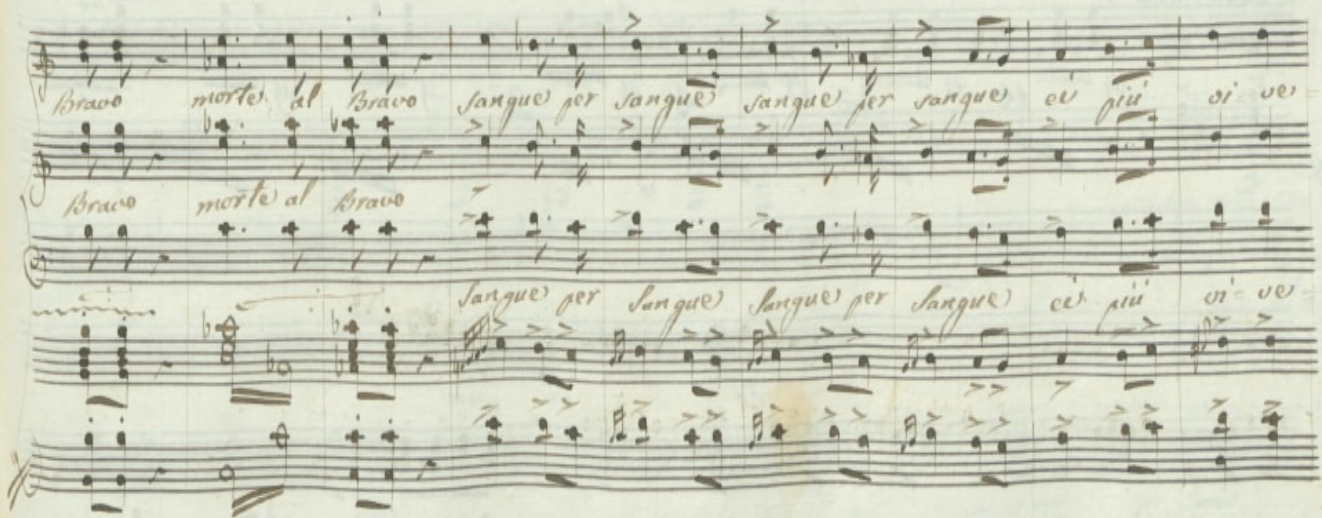 Bravo morte al Bravo Sangue per sangue sangue per sangue ei più vi = ve =
Bravo morte al Bravo
Sangue per Sangue Sangue per Sangue ei più vi = ve =